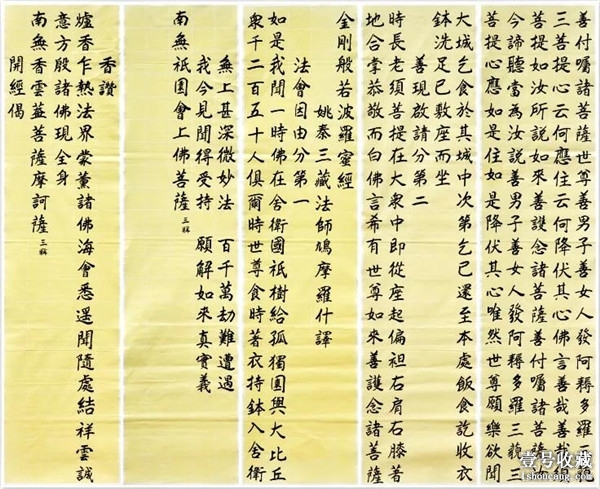 香讚
爐香乍熱法界蒙薰諸佛海會悉遥聞隨處結祥雲誠
意方殷諸佛現全身
南無香雲蓋菩薩摩訶薩 三稱
開經偈
無上甚深微妙法 百千萬劫難遭遇
我今見聞得受持 願解如來真實義
南無祇園會上佛菩薩 三稱
金剛般若波羅蜜經
姚秦三藏法師鳩摩羅什譯
法會因由分第一
如是我聞一時佛在舍衛國祇樹給孤獨園與大比丘
衆千二百五十人俱爾時世尊食時著衣持鉢入舍衛
大城乞食於其城中次第乞已還至本處飯食訖收衣
鉢洗足已敷座而坐
善現啟請分第二
時長老須菩提在大衆中即從座起偏袒右肩右膝著
地合掌恭敬而白佛言希有世尊如來善護念諸菩薩
善付囑諸菩薩世尊善男子善女人發阿耨多羅三藐
三菩提心云何應住云何降伏其心佛言善哉善哉須
菩提如汝所說如來善護念諸菩薩善付囑諸菩薩汝
今諦聽當為汝說善男子善女人發阿耨多羅三藐三
菩提心應如是住如是降伏其心唯然世尊願樂欲聞
壹号收藏
1shoucang.com